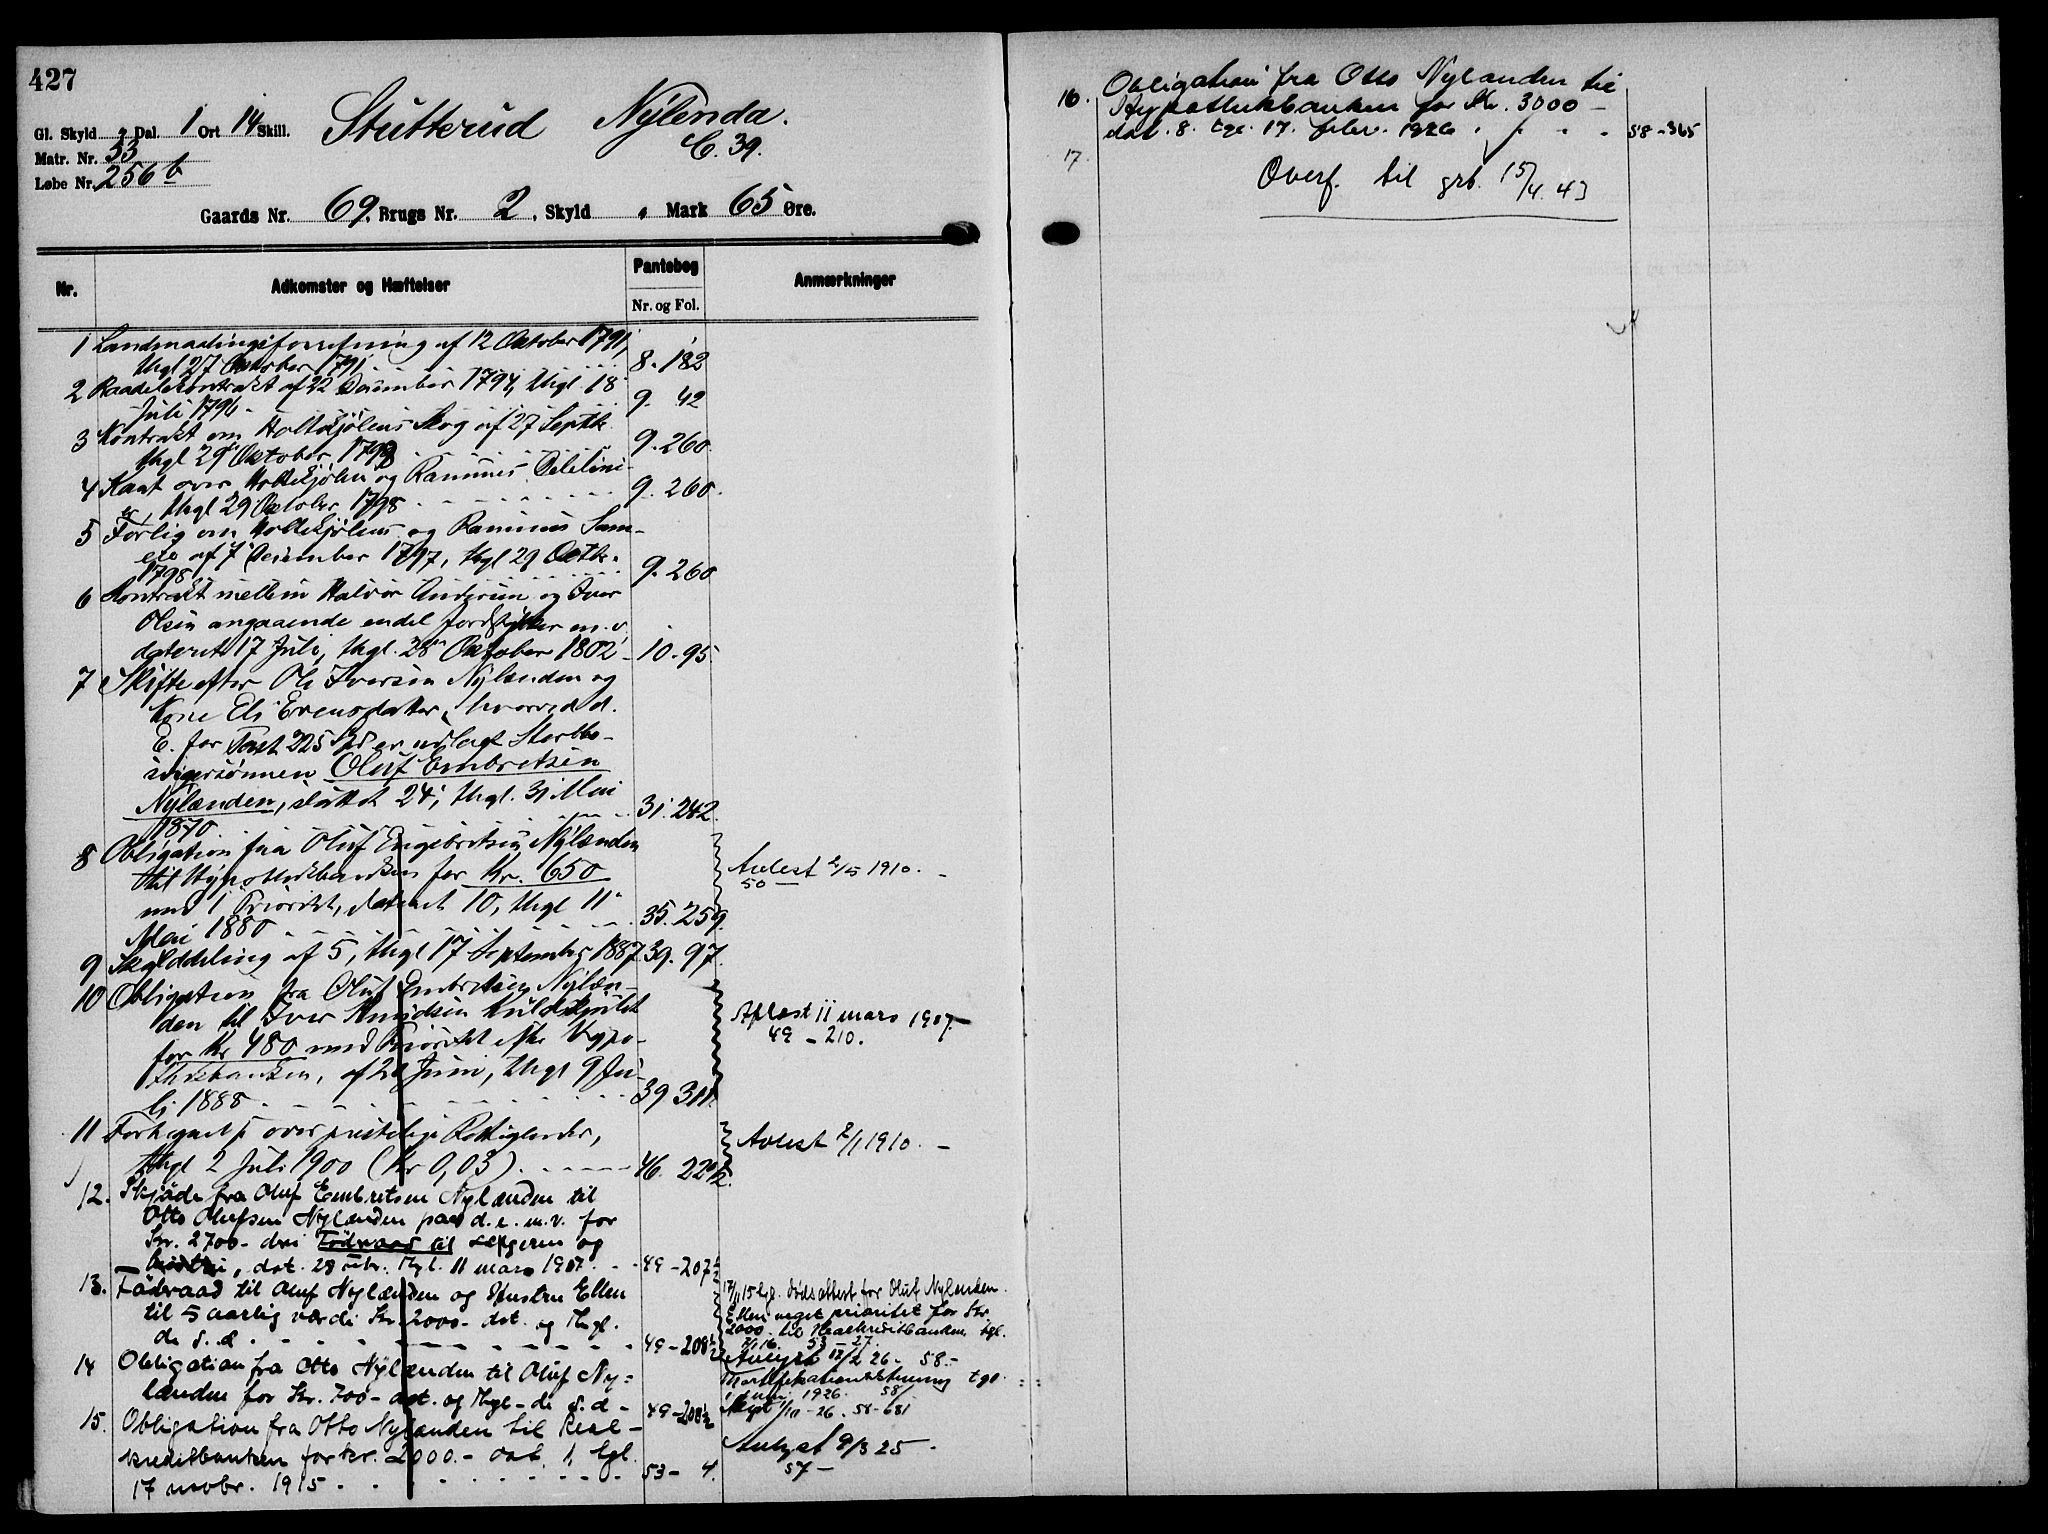 427
Gl. Skyld 2 Dal. 1 Ort 14 Skill. Stutterud Nylenda.
Matr. Nr. 33 C. 39.
Løbe Nr. 256 b
Gaards Nr. 69, Brugs Nr. 2, Skyld " Mark 65 Øre.
Nr. Adkomster og Hæftelser Pantebog Nr. og Fol. Anmærkninger
1 Landmaalingsforretning af 12 Oktober 1791,
thgl 27 Oktober 1791 8. 182
2 Raadelskontrakt af 22 December 1794, thgl. 18
Juli 1796 - 9. 42
3 Kontrakt om Holtekjølens Skog af 27 Septbr.
thgl 29 Oktober 1798 9. 260.
4 Kart over Holtekjølen og Rammes Delelini-
er, thgl 29 Oktober 1798 9. 260.
5 Forlig om Holtekjølens og Rammes Sam-
eie af 7 December 1797, thgl 29 Octbr.
1798 9. 260
6 Kontrakt mellem Halvor Andersen og Iver
Olsen angaaende endel Jordstykker m.v.
dateret 17 Juli, thgl. 28 Oktober 1802 10. 95
7 Skifte efter Ole Iversen Nylænden og
Kone Eli Evensdatter, hvorved d.
E. for Taxt 225 Spd er udlagt Sterbbo-
svigersønnen Oluf Embretsen
Nylænden, sluttet 24, thgl. 31 Mai
1870. 31. 242.
8 Obligation fra Oluf Engebretsen Nylænden
til Hypothekbanken for Kr. 650
med 1 Prioritet, dateret 10, thgl 11
Mai 1880 35. 259.
Avlest 2/5 1910. -
50 -
9 Skylddeling af 5, thgl 17 September 1887 39. 97.
10 Obligation fra Oluf Embretsen Nylæn-
den til Iver Knudsen
for Kr 480 med Prioritet efter Hypo-
thekbanken, af 24 Juni, thgl 9 Ju-
li 1888 39 311.
Aflæst 11 mars 1907.
49 - 210.
11 over
thgl 2 Juli 1900 (Kr 0,03). 46. 229 1/2.
Avlest 2/1 1910. -
12. Skjöde fra Oluf Embretsen Nylænden til
Otto Olufsen Nylænden paa d. e. m.v. for
Kr. 2700 - deri Födraad til selgeren og
hustru, dat. 28 febr. thgl. 11 mars 1907. 49 - 207 1/2
13. Födraad til Oluf Nylænden og Hustru Ellen
til 5 aarlig værdi Kr. 2000 - dat. og thgl.
de s. d 49 - 208 1/2
17/11 15 tgl. dødsattest for Oluf Nylenden.
Ellen veget prioritet for Kr.
2000 - til Realkreditbanken tgl.
53 - 27.
14 Obligation fra Otto Nylænden til Oluf Ny-
lænden for Kr. 700 - dat. og thgl - de s. d - 49 - 208 1/2
Mortifikationsstevning tgl.
1 juni 1926. 58/
Avlyst 1/10 - 26. 58 - 681
15. Obligation fra Otto Nylænden til Real-
kreditbanken for kr. 2000. - dat. 1, tgl.
17 novbr. 1915 53 - 4.
Avlyst 9/3 25 -
57 -
16. Obligation fra Otto Nylænden til
Hypothekbanken for Kr. 3000 -
dat. 8. tgl. 17. febr. 1926. 58 - 365
17. Overf. til grb. 15/4. 43